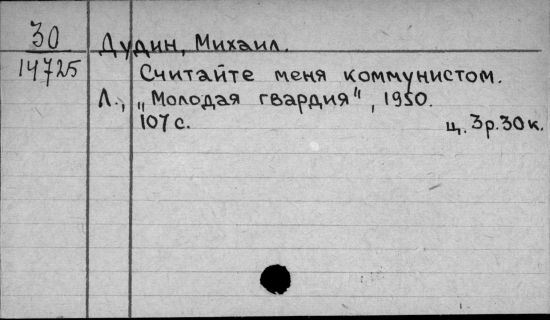 30
14725
Дудин, Михаил.
Считайте меня коммунистом.
Л., „Молодая гвардия", 1950.
107 с.
ц. 3 р. 30 к.